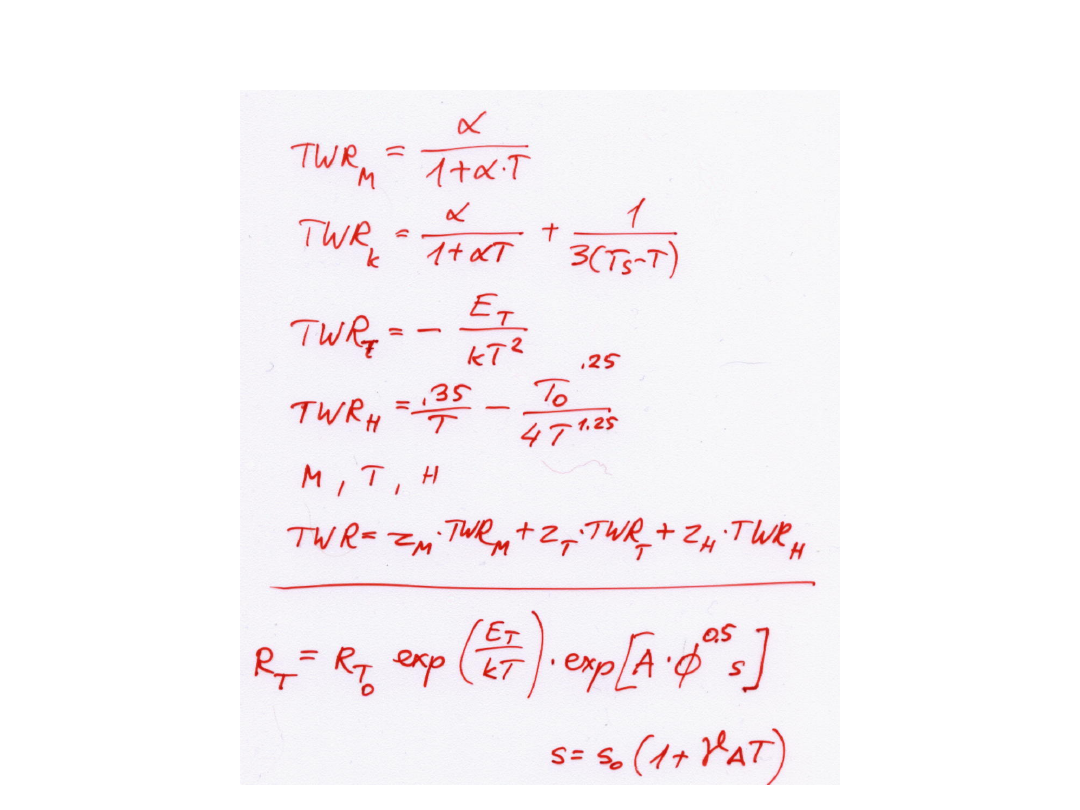 TWR_M = α / (1+α·T)
TWR_k = α / (1+αT) + 1 / (3(T_S-T))
TWR_T = - E_T / (kT^2)
TWR_H = .35 / T - T_0^.25 / (4T^1.25)
M, T, H
TWR = z_M·TWR_M + z_T·TWR_T + z_H·TWR_H
R_T = R_T_0 exp(E_T / kT) · exp[A·ϕ^0.5 s]
s = s_0 (1+γ_A T)